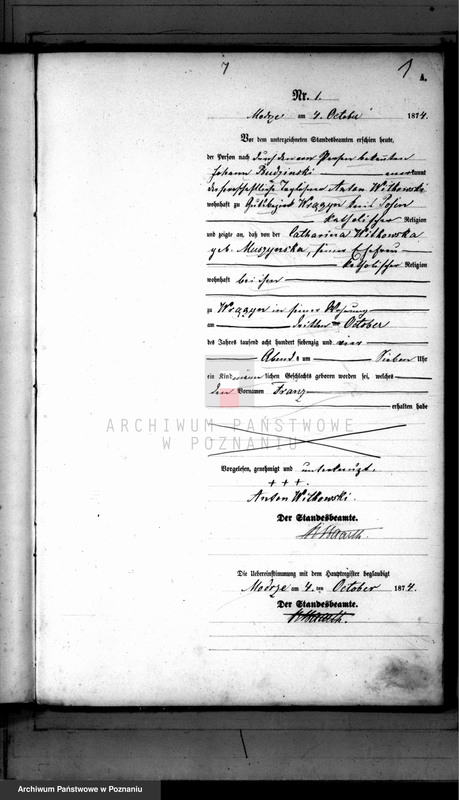 7
1
A.
Nr. 1.
Modrze am 4. October 1874.
Vor dem unterzeichneten Standesbeamten erschien heute,
der Person nach durch den von Person bekannten
Johann Budzinski anerkannt
der herrschaftliche Tagelöhner Anton Witkowski
wohnhaft zu Gutsbezirk Kreis Posen
katholischer Religion
und zeigte an, daß von der Catharina Witkowska
geb. Muszynska, seiner Ehefrau
katholischer Religion
wohnhaft bei ihm
zu in seiner Wohnung
am dritten October
des Jahres tausend acht hundert siebenzig und vier
Abends um Sieben Uhr
ein Kind männlichen Geschlechts geboren worden sei, welches
den Vornamen Franz
erhalten habe
ARCHIWUM PAŃSTWOWE
W POZNANIU
Vorgelesen, genehmigt und unterkreuzt.
+ + +.
Anton Witkowski.
Der Standesbeamte.
Die Uebereinstimmung mit dem Hauptregister beglaubigt
Modrze am 4. ten October 1874.
Der Standesbeamte.
Archiwum Państwowe w Poznaniu